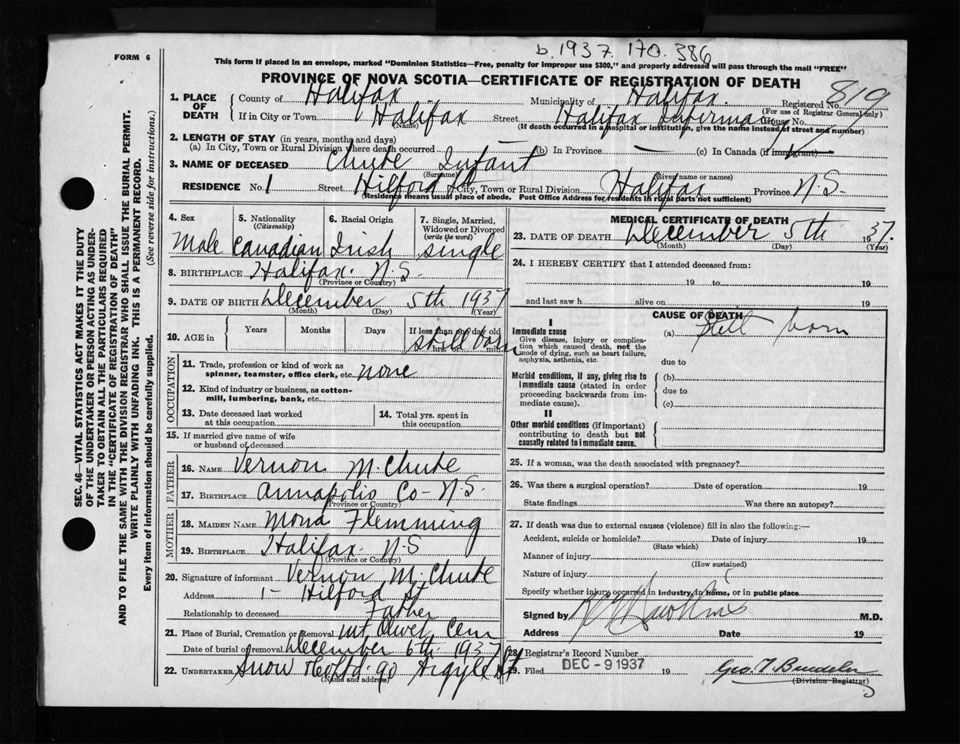 b. 1937. 170. 386
FORM 6
This form if placed in an envelope, marked "Dominion Statistics—Free, penalty for improper use $300," and properly addressed will pass through the mail "FREE"
PROVINCE OF NOVA SCOTIA—CERTIFICATE OF REGISTRATION OF DEATH
819
1. PLACE OF DEATH County of Halifax Municipality of Halifax. Registered No.
(For use of Registrar General only)
If in City or Town Halifax Street Halifax Infirmary House No.
(Name) (If death occurred in a hospital or institution, give the name instead of street and number)
2. LENGTH OF STAY (in years, months and days)
(a) In City, Town or Rural Division where death occurred (b) In Province — (c) In Canada (if immigrant)
3. NAME OF DECEASED Chute Infant
(Surname) (Given name or names)
RESIDENCE No. 1 Street Hilford St City, Town or Rural Division Halifax Province N.S.
(Residence means usual place of abode. Post Office Address for residents in rural parts not sufficient)
4. Sex
Male
5. Nationality (Citizenship)
Canadian
6. Racial Origin
Irish
7. Single, Married, Widowed or Divorced (write the word)
Single
8. BIRTHPLACE Halifax. N.S.
(Province or Country)
9. DATE OF BIRTH December 5th 1937
(Month) (Day) (Year)
10. AGE in Years Months Days If less than one day old
still born
hrs. or min.
OCCUPATION
11. Trade, profession or kind of work as spinner, teamster, office clerk, etc. none
12. Kind of industry or business, as cotton-mill, lumbering, bank, etc.
13. Date deceased last worked at this occupation
14. Total yrs. spent in this occupation
15. If married give name of wife or husband of deceased
FATHER
16. NAME Vernon M. Chute
17. BIRTHPLACE Annapolis Co- N.S.
(Province or Country)
MOTHER
18. MAIDEN NAME Mona Flemming
19. BIRTHPLACE Halifax. N.S
(Province or Country)
20. Signature of informant Vernon M. Chute
Address 1 - Hilford St
Relationship to deceased Father
21. Place of Burial, Cremation or Removal Mt Olivet Cem
Date of burial or removal December 6th 1937
22. UNDERTAKER Snow & Co Ltd. 90 Argyle St
(Name and address)
MEDICAL CERTIFICATE OF DEATH
23. DATE OF DEATH December 5th 1937.
(Month) (Day) (Year)
24. I HEREBY CERTIFY that I attended deceased from:
19 to 19
and last saw h alive on 19
CAUSE OF DEATH
I
Immediate cause
Give disease, injury or complication which caused death, not the mode of dying, such as heart failure, asphyxia, asthenia, etc.
(a) Still born
due to
Morbid conditions, if any, giving rise to immediate cause (stated in order proceeding backwards from immediate cause).
(b)
due to
(c)
II
Other morbid conditions (if important) contributing to death but not causally related to immediate cause.
25. If a woman, was the death associated with pregnancy?
26. Was there a surgical operation? Date of operation 19
State findings Was there an autopsy?
27. If death was due to external causes (violence) fill in also the following:—
Accident, suicide or homicide? Date of injury 19
(State which)
Manner of injury
(How sustained)
Nature of injury
Specify whether injury occurred in industry, in home, or in public place
Signed by M.D.
Address Date 19
28. Registrar's Record Number
29. Filed DEC - 9 1937 19
(Division Registrar)
SEC. 46—VITAL STATISTICS ACT MAKES IT THE DUTY
OF THE UNDERTAKER OR PERSON ACTING AS UNDER-
TAKER TO OBTAIN ALL THE PARTICULARS REQUIRED
IN THE "CERTIFICATE OF REGISTRATION OF DEATH"
AND TO FILE THE SAME WITH THE DIVISION REGISTRAR WHO SHALL ISSUE THE BURIAL PERMIT.
WRITE PLAINLY WITH UNFADING INK. THIS IS A PERMANENT RECORD.
Every item of information should be carefully supplied. (See reverse side for instructions.)